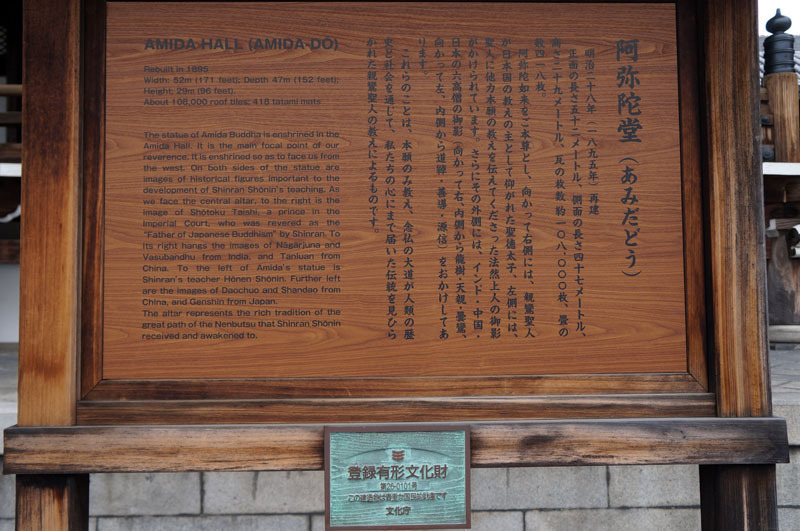 AMIDA HALL (AMIDA-DŌ)
Rebuilt in 1895
Width: 52m (171 feet); Depth 47m (152 feet);
Height: 29m (96 feet).
About 108,000 roof tiles; 418 tatami mats
The statue of Amida Buddha is enshrined in the
Amida Hall. It is the main focal point of our
reverence. It is enshrined so as to face us from
the west. On both sides of the statue are
images of historical figures important to the
development of Shinran Shōnin's teaching. As
we face the central altar, to the right is the
image of Shōtoku Taishi, a prince in the
Imperial Court, who was revered as the
"Father of Japanese Buddhism" by Shinran. To
its right hangs the images of Nāgārjuna and
Vasubandhu from India, and Tanluan from
China. To the left of Amida's statue is
Shinran's teacher Hōnen Shōnin. Further left
are the images of Daochuo and Shandao from
China, and Genshin from Japan.
The altar represents the rich tradition of the
great path of the Nenbutsu that Shinran Shōnin
received and awakened to.
阿弥陀堂(あみだどう)
明治二十八年(一八九五年)再建
正面の長さ五十二メートル、側面の長さ四十七メートル、
高さ二十九メートル、瓦の枚数 約一〇八、〇〇〇枚、畳の
数四一八枚。
阿弥陀如来をご本尊とし、向かって右側には、親鸞聖人
が日本国の教えの主として仰がれた聖徳太子、左側には、
聖人に他力本願の教えを伝えてくださった法然上人の御影
がかけられています。さらにその外側には、インド・中国・
日本の六高僧の御影(向かって右、内側から龍樹・天親・曇鸞、
向かって左、内側から道綽・善導・源信)をおかけしてあ
ります。
これらのことは、本願のみ教え、念仏の大道が人類の歴
史と社会を通して、私たちの心にまで届いた伝統を見ひら
かれた親鸞聖人の教えによるものです。
登録有形文化財
第26-0101号
この建造物は貴重な国民的財産です
文化庁